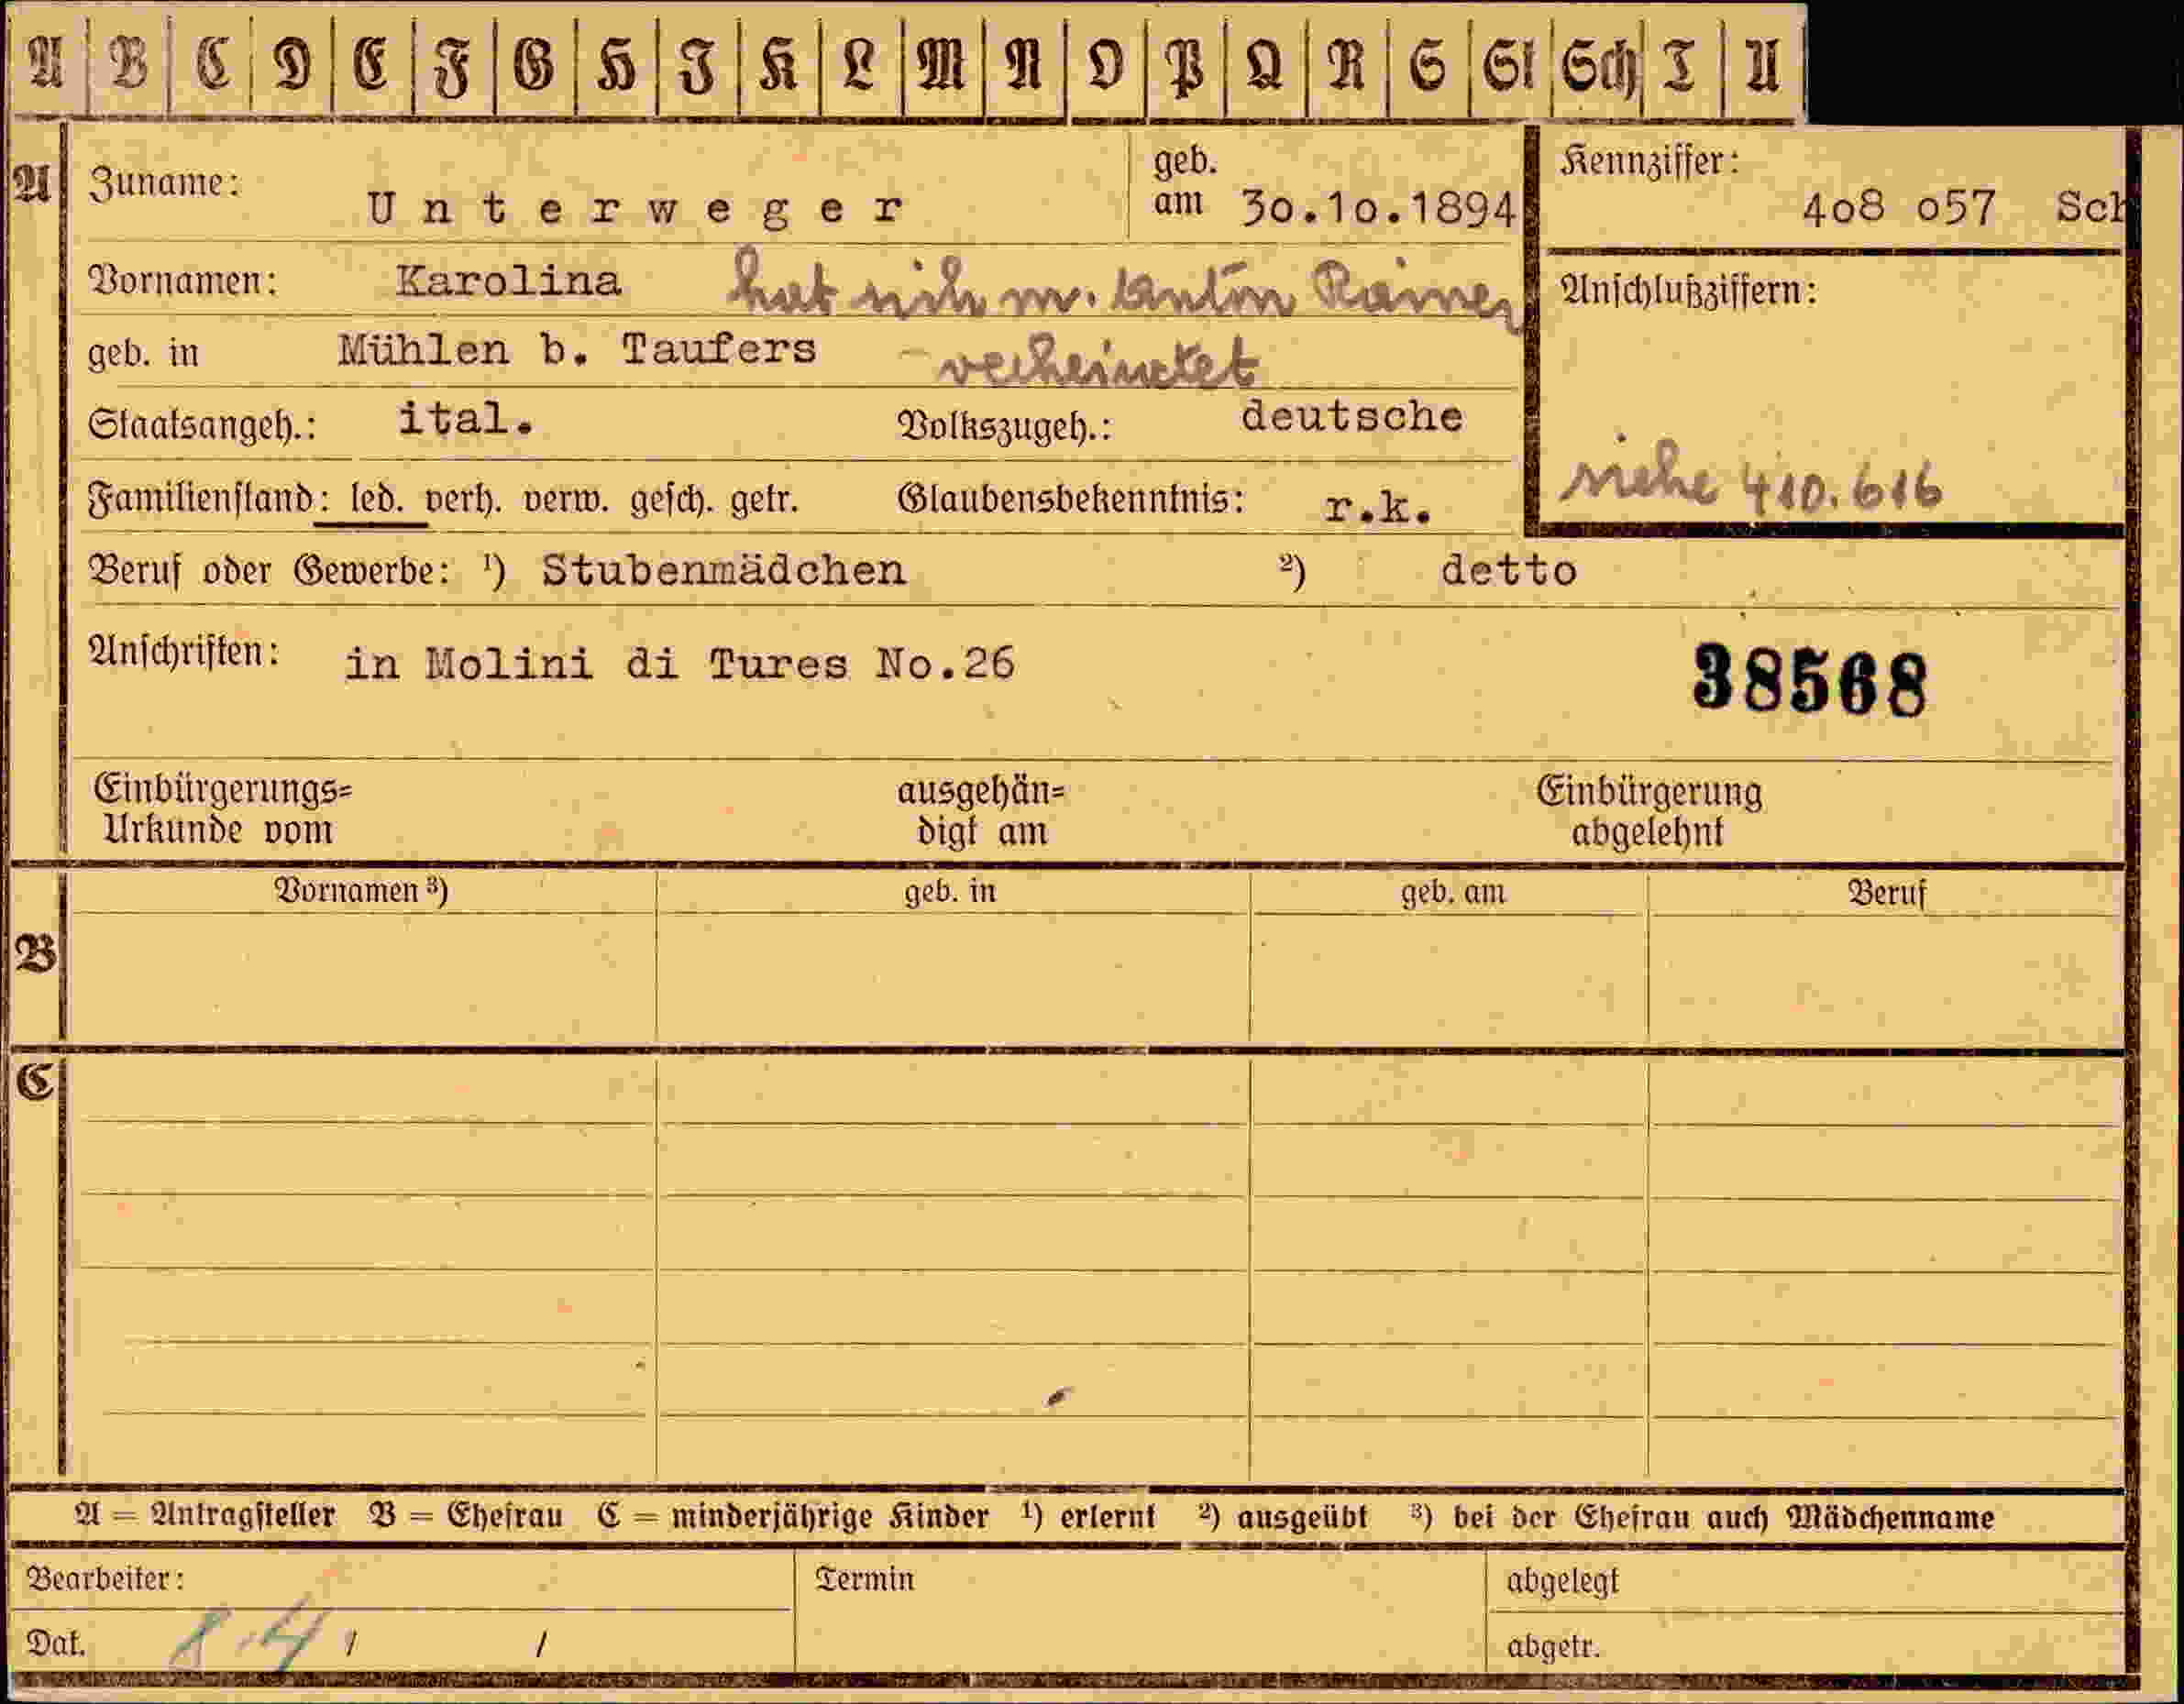 A B C D E F G H I K L M N O P Q R S St Sch T U
A Zuname: Unterweger geb. am 30.10.1894 Kennziffer: 408 057 Sch
Vornamen: Karolina hat sich m. Anton Rainer Anschlußziffern:
geb. in Mühlen b. Taufers verheiratet
Staatsangeh.: ital. Volkszugeh.: deutsche
siehe 410.616
Familienstand: led. verh. verw. gesch. getr. Glaubensbekenntnis: r.k.
Beruf oder Gewerbe: ¹) Stubenmädchen ²) detto
Anschriften: in Molini di Tures No.26 38568
Einbürgerungs= ausgehän= Einbürgerung
Urkunde vom digt am abgelehnt
Vornamen ³) geb. in geb. am Beruf
B
C
A = Antragsteller B = Ehefrau C = minderjährige Kinder ¹) erlernt ²) ausgeübt ³) bei der Ehefrau auch Mädchenname
Bearbeiter: Termin abgelegt
Dat. 8.4 / / abgetr.